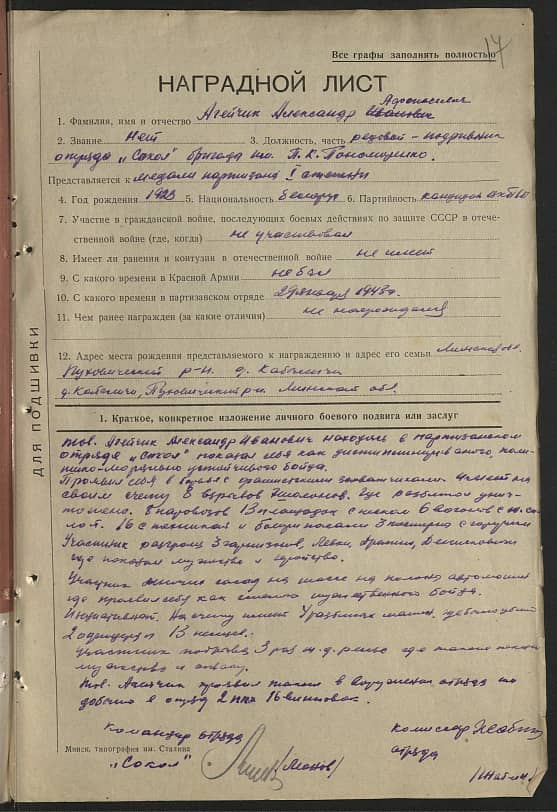 17
Все графы заполнять полностью
НАГРАДНОЙ ЛИСТ
Афанасьевич
1. Фамилия, имя и отчество Агейчик Александр Иванович
2. Звание Нет 3. Должность, часть рядовой - подрывник
отряда „Сокол" бригада им. П. К. Пономаренко.
Представляется к медали партизана I степени
4. Год рождения 1923 5. Национальность белорус 6. Партийность кандидат
7. Участие в гражданской войне, последующих боевых действиях по защите СССР в отече-
ственной войне (где, когда) не участвовал
8. Имеет ли ранения и контузии в отечественной войне не имеет
9. С какого времени в Красной Армии не был
10. С какого времени в партизанском отряде января 1943 г.
11. Чем ранее награжден (за какие отличия) не награждался
12. Адрес места рождения представляемого к награждению и адрес его семьи Минская обл.
Пуховичский р-н. д.
д. Пуховичский р-н Минской обл.
ДЛЯ ПОДШИВКИ
1. Краткое, конкретное изложение личного боевого подвига или заслуг
тов. Агейчик Александр Иванович находясь в партизанском
отряде „Сокол" показал себя как дисциплинированого, поли-
тико-морально устойчивого бойца.
Проявил себя в борьбе с фашистскими захватчиками. имеет на
своем счету 8 взрывов эшелонов. Где разбито и унич-
тожено. 8 паровозов 13 площадок с 6 вагонов с
16 с техникой и боеприпасами 3 цистерны с горючим
Участник разгрома 3 гарнизонов,
где показал мужество и геройство.
Участник засад на шоссе на автомашин
где проявил себя как смелого мужественного бойца.
На счету имеет
2 офицера и 13 немцев.
Участник подрыва 3 раз ж.д. рельс где также показал
мужество и отвагу.
тов. Агейчик проявил также в вооружении отряда
добыто в отряд 2 16 винтовок.
Командир отряда
„Сокол"
комиссар
отряда
Минск, типография им. Сталина